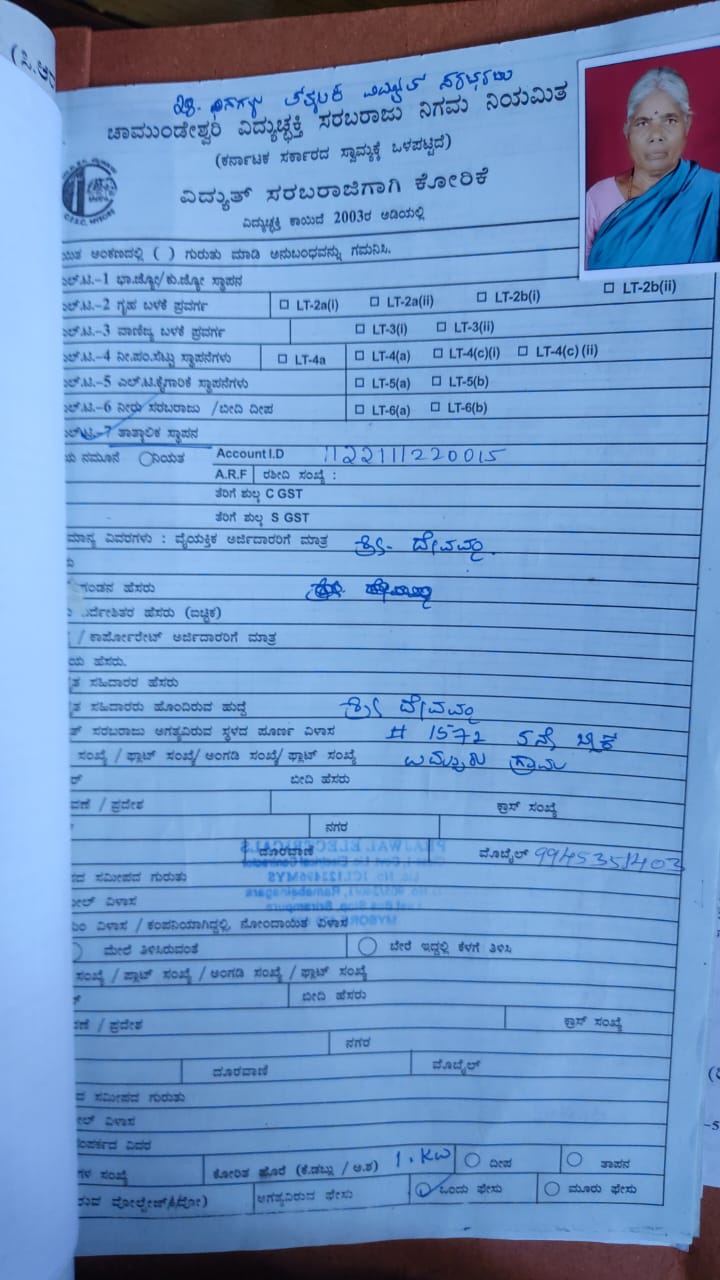 (ಸಿ.ಆರ
ತತ್ಕಾಲಿಕ ವಿದ್ಯುತ್
ಚಾಮುಂಡೇಶ್ವರಿ ವಿದ್ಯುಚ್ಛಕ್ತಿ ಸರಬರಾಜು ನಿಗಮ ನಿಯಮಿತ
(ಕರ್ನಾಟಕ ಸರ್ಕಾರದ ಸ್ವಾಮ್ಯಕ್ಕೆ ಒಳಪಟ್ಟಿದೆ)
ವಿದ್ಯುತ್ ಸರಬರಾಜಿಗಾಗಿ ಕೋರಿಕೆ
ವಿದ್ಯುಚ್ಛಕ್ತಿ ಕಾಯಿದೆ 2003ರ ಅಡಿಯಲ್ಲಿ
ಅಂಕಣದಲ್ಲಿ ( ) ಗುರುತು ಮಾಡಿ ಅನುಬಂಧವನ್ನು ಗಮನಿಸಿ.
ಲ್.ಟಿ.-1 ಭಾ.ಜ್ಯೋ/ಕು.ಜ್ಯೋ ಸ್ಥಾಪನ
ಲ್.ಟಿ.-2 ಗೃಹ ಬಳಕೆ ಪ್ರವರ್ಗ LT-2a(i) LT-2a(ii) LT-2b(i) LT-2b(ii)
ಲ್.ಟಿ.-3 ವಾಣಿಜ್ಯ ಬಳಕೆ ಪ್ರವರ್ಗ LT-3(i) LT-3(ii)
ಲ್.ಟಿ.-4 ನೀ.ಪಂ.ಸೆಟ್ಟು ಸ್ಥಾಪನೆಗಳು LT-4a LT-4(a) LT-4(c)(i) LT-4(c) (ii)
ಲ್.ಟಿ.-5 ಎಲ್.ಟಿ.ಕೈಗಾರಿಕೆ ಸ್ಥಾಪನೆಗಳು LT-5(a) LT-5(b)
ಲ್.ಟಿ.-6 ನೀರು ಸರಬರಾಜು /ಬೀದಿ ದೀಪ LT-6(a) LT-6(b)
ಲ್.ಟಿ.-7 ತಾತ್ಕಾಲಿಕ ಸ್ಥಾಪನ
ಯ ನಮೂನೆ ನಿಯತ Account I.D 112211220015
A.R.F ರಶೀದಿ ಸಂಖ್ಯೆ :
ತೆರಿಗೆ ಶುಲ್ಕ C GST
ತೆರಿಗೆ ಶುಲ್ಕ S GST
ಮಾನ್ಯ ವಿವರಗಳು : ವೈಯಕ್ತಿಕ ಅರ್ಜಿದಾರರಿಗೆ ಮಾತ್ರ ಶ್ರೀ ದೇವಮ್ಮ
ಗಂಡನ ಹೆಸರು
ನಿರ್ದೇಶಿತರ ಹೆಸರು (ಐಚ್ಛಿಕ)
/ ಕಾರ್ಪೋರೇಟ್ ಅರ್ಜಿದಾರರಿಗೆ ಮಾತ್ರ
ಯ ಹೆಸರು.
ೃತ ಸಹಿದಾರರ ಹೆಸರು
ೃತ ಸಹಿದಾರರು ಹೊಂದಿರುವ ಹುದ್ದೆ ಶ್ರೀ ದೇವಮ್ಮ
ತ್ ಸರಬರಾಜು ಅಗತ್ಯವಿರುವ ಸ್ಥಳದ ಪೂರ್ಣ ವಿಳಾಸ # 1572 5ನೇ
ಸಂಖ್ಯೆ / ಫ್ಲಾಟ್ ಸಂಖ್ಯೆ/ ಅಂಗಡಿ ಸಂಖ್ಯೆ/ ಫ್ಲಾಟ್ ಸಂಖ್ಯೆ ಗ್ರಾಮ
ಬೀದಿ ಹೆಸರು
ವಣೆ / ಪ್ರದೇಶ ಕ್ರಾಸ್ ಸಂಖ್ಯೆ
ನಗರ
ದೂರವಾಣಿ ಮೊಬೈಲ್ 9945351403
ದ ಸಮೀಪದ ಗುರುತು
ಮೇಲ್ ವಿಳಾಸ
ವಿಳಾಸ / ಕಂಪನಿಯಾಗಿದ್ದಲ್ಲಿ, ನೋಂದಾಯಿತ ವಿಳಾಸ
ಮೇಲೆ ತಿಳಿಸಿರುವಂತೆ ಬೇರೆ ಇದ್ದಲ್ಲಿ ಕೆಳಗೆ ತಿಳಿಸಿ
ಸಂಖ್ಯೆ / ಪ್ಲಾಟ್ ಸಂಖ್ಯೆ / ಅಂಗಡಿ ಸಂಖ್ಯೆ / ಫ್ಲಾಟ್ ಸಂಖ್ಯೆ
ಬೀದಿ ಹೆಸರು
ವಣೆ / ಪ್ರದೇಶ ಕ್ರಾಸ್ ಸಂಖ್ಯೆ
ನಗರ
ದೂರವಾಣಿ ಮೊಬೈಲ್
ದ ಸಮೀಪದ ಗುರುತು
ಮೇಲ್ ವಿಳಾಸ
ಸಂಪರ್ಕದ ವಿವರ
ಗಳ ಸಂಖ್ಯೆ ಕೋರಿತ ಹೊರೆ (ಕೆ.ಡಬ್ಲು / ಅ.ಶ) 1.KW ದೀಪ ತಾಪನ
ರುವ ವೋಲ್ಟೇಜ್ ಅಗತ್ಯವಿರುವ ಫೇಸು ಒಂದು ಫೇಸು ಮೂರು ಫೇಸು